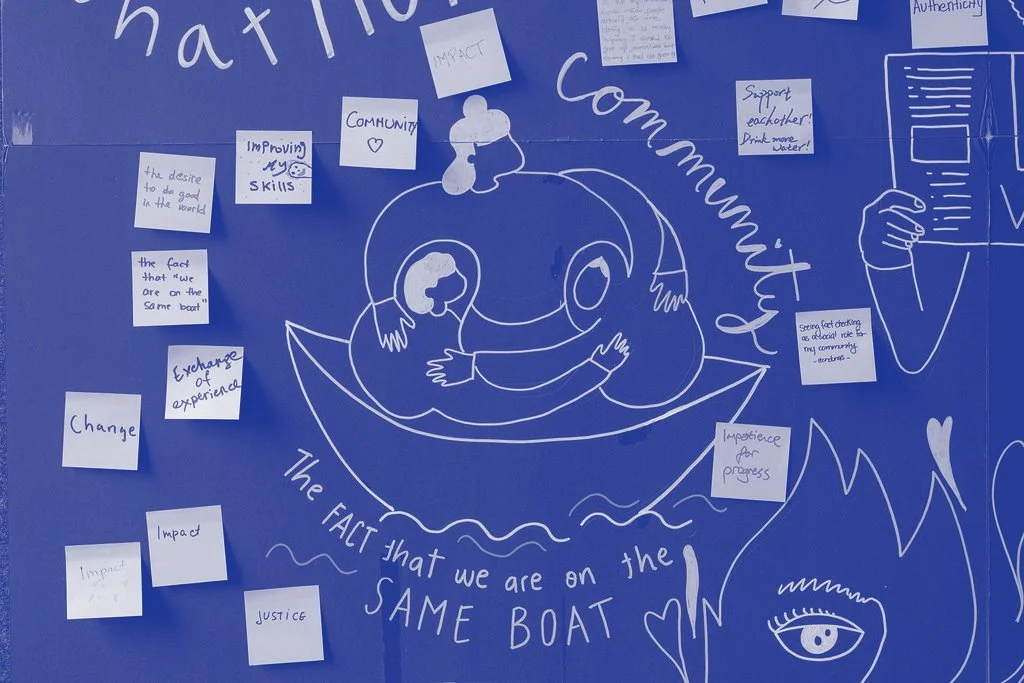 IMPACT
Authenticity
Community
COMMUNITY
Support
eachother!
Drink more
water!
Improving
my
skills
the desire
to do good
in the world
the fact
that "we
are on the
same boat"
Seeing fact checking
as a social role for
my community
- Honduras -
Exchange
of
experience
Change
Impatience
for
progress
Impact
Impact
JUSTICE
The FACT that we are on the
SAME BOAT